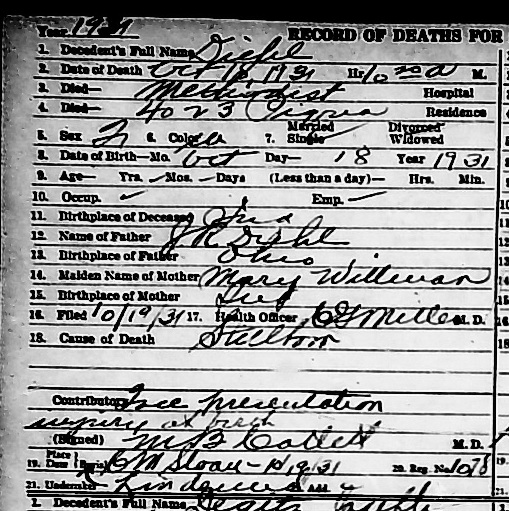 Year 1931 RECORD OF DEATHS FOR
1. Decedent's Full Name Diehl
2. Date of Death Oct 18, 1931 Hr 10 20 a M.
3. Died— Methodist Hospital
4. Died— 4023 Residence
5. Sex 6. Color 7. Married Single Divorced Widowed
8. Date of Birth—Mo. Oct Day— 18 Year 1931
9. Age— Yrs. — Mos. — Days (Less than a day)— Hrs. Min.
10. Occup. Emp.
11. Birthplace of Deceased Ind
12. Name of Father J R Diehl
13. Birthplace of Father Ohio
14. Maiden Name of Mother Mary
15. Birthplace of Mother Ind
16. Filed 10/19/31 17. Health Officer M. D.
18. Cause of Death Stillborn
Contributory Face presentation
injury at birth
(Signed) M. D.
19. Place Date (Burial) Sloan — 10 19 31 20. Reg. No. 1078
21. Undertaker Add.
1. Decedent's Full Name